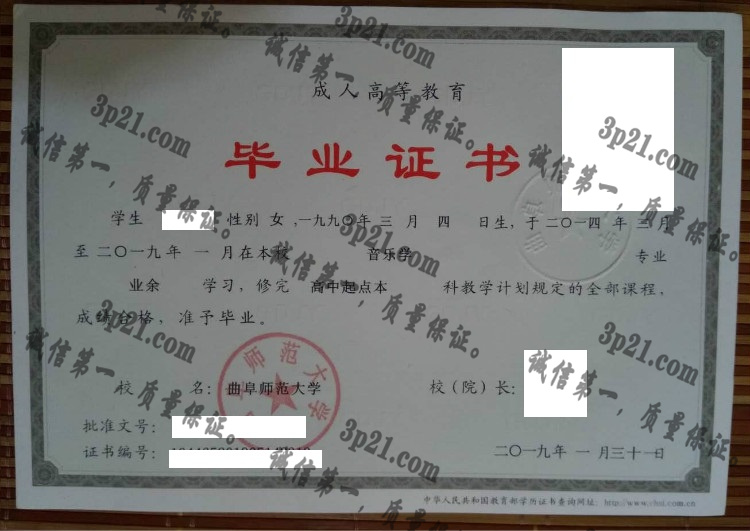 成人高等教育
毕业证书
学生 性别 女 ,一九九〇年 三 月 四 日生, 于 二〇一四 年 三 月
至 二〇一九年 一 月在本校 音乐学 专业
业余 学习, 修完 高中起点本 科教学计划规定的全部课程,
成绩合格, 准予毕业。
校 名: 曲阜师范大学 校(院)长:
批准文号:
证书编号:
二〇一九年 一 月三十一日
中华人民共和国教育部学历证书查询网址: http://www.chsi.com.cn
师范大学
3p21.com
诚信第一，质量保证。
3p21.com
诚信第一，质量保证。
3p21.com
诚信第一，质量保证。
3p21.com
诚信第一，质量保证。
3p21.com
诚信第一，质量保证。
3p21.com
诚信第一，质量保证。
3p21.com
诚信第一，质量保证。